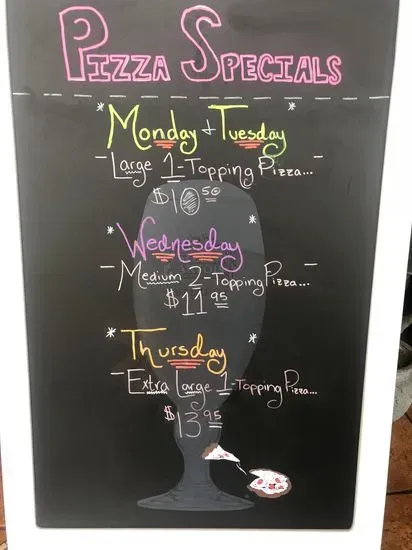 Pizza Specials
* Monday & Tuesday *
- Large 1-Topping Pizza... -
$10.50
* Wednesday *
- Medium 2-Topping Pizza... -
$11.95
* Thursday *
- Extra Large 1-Topping Pizza...
$13.95